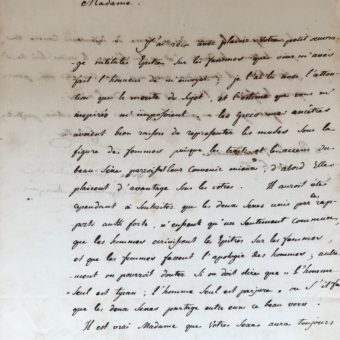 Madame.
J'ai reçu avec plaisir votre petit ouvra-
ge intitulée Epitres sur les femmes que vous m'avés
fait l'honneur de m'envoyer; je l'ai lu avec l'atten-
tion que le mérite du Sujet, et l'estime que vous m'
inspirés m'imposoient. les Grecs nos ancêtres
avoient bien raison de representer les muses sous la
figure de femmes puisque les traits et les accens du
beau-Sexe paroissent leur convenir mieux; d'abord Elles
plairont d'avantage sur les votres. Il auroit été
cependant à souhaiter que les deux Sexes unis par les rap-
ports aussi forts, n'eussent qu'un Sentiment commun,
que les hommes ecrivissent les Epitres sur les femmes,
et que les femmes fassent l'apologie des hommes; autre-
ment on pourroit douter Si on doit dire que "l'homme
Seul est tyran; l'homme Seul est parjure" ou S'il fa
que les deux Sexes partage entre eux ce beau vers.
Il est vrai Madame que Votre Sexe aura toujours